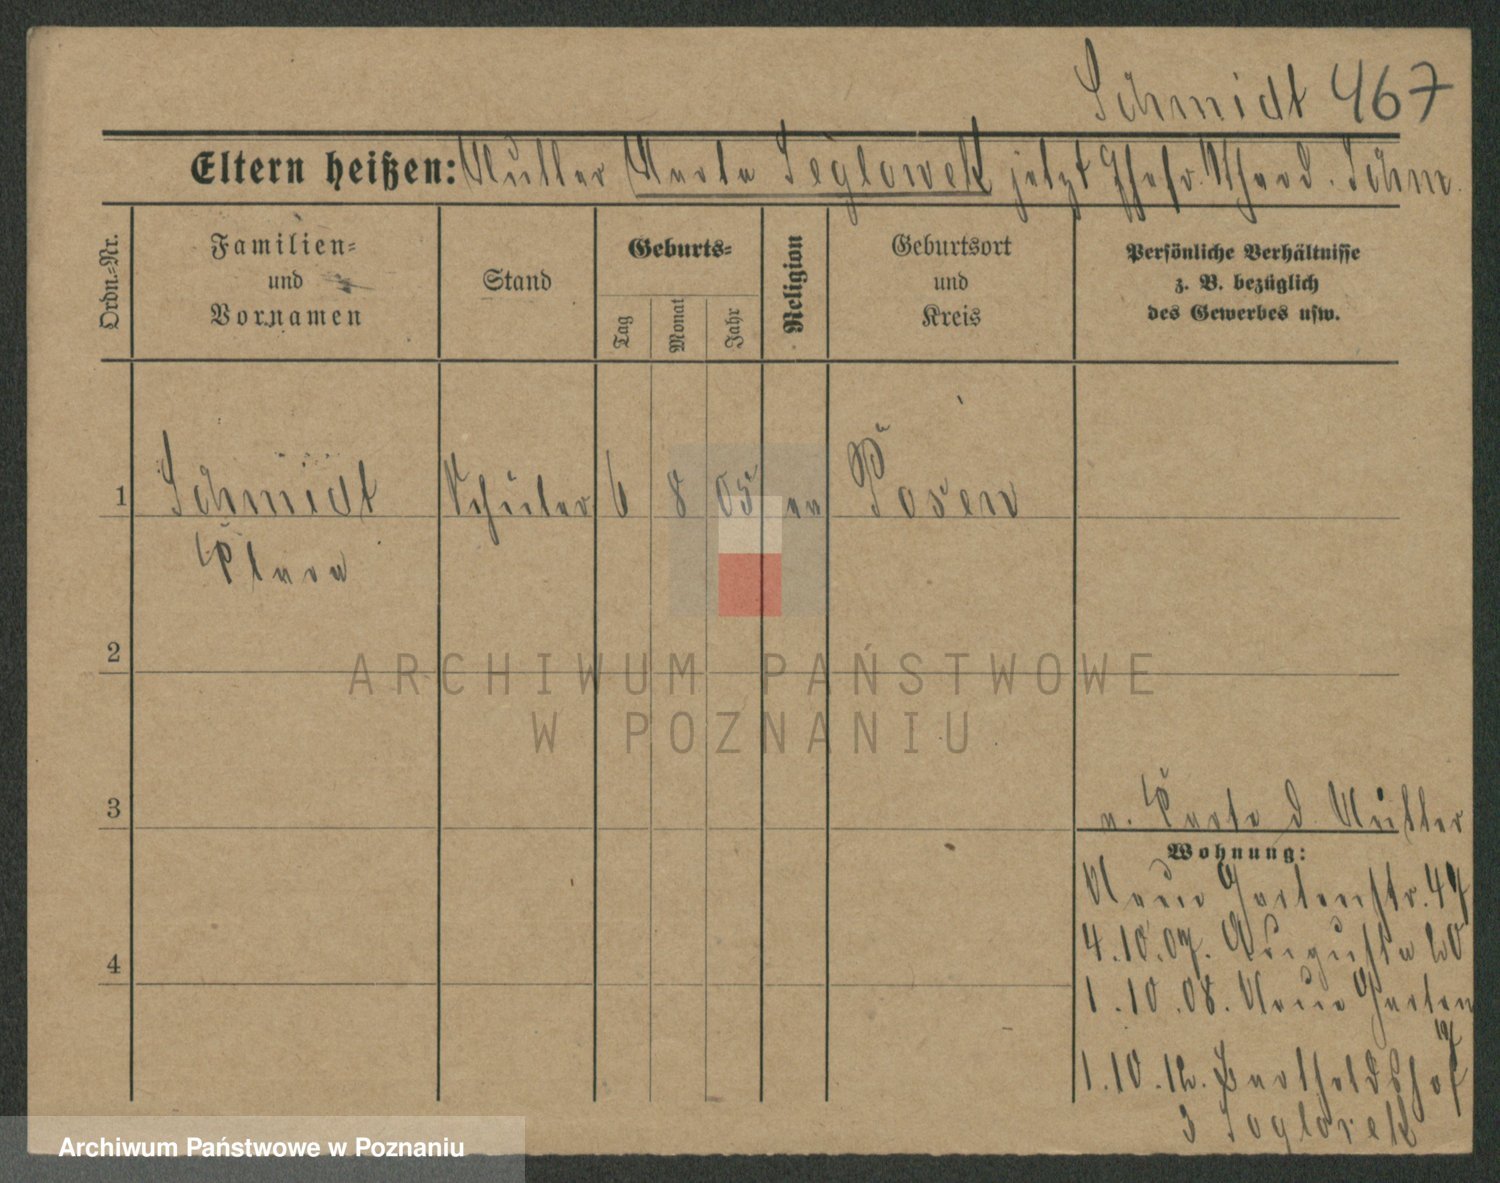 Schmidt 467
Eltern heißen: Mutter Marta Seglowek jetzt Ehefr. Schm
Ordn.-Nr.
Familien-
und
Vornamen
Stand
Geburts-
Tag
Monat
Jahr
Religion
Geburtsort
und
Kreis
Persönliche Verhältnisse
z. B. bezüglich
des Gewerbes usw.
1 Schmidt Schüler 6 8 05 ev Posen
Klara
2
ARCHIWUM PAŃSTWOWE
W POZNANIU
3
a. Karte d. Mutter
Wohnung:
Neue Gartenstr. 47
4.10.07. Augusta 20
4
1.10.08. Neue Garten
1.10.12. Bartholdshof
3
Archiwum Państwowe w Poznaniu